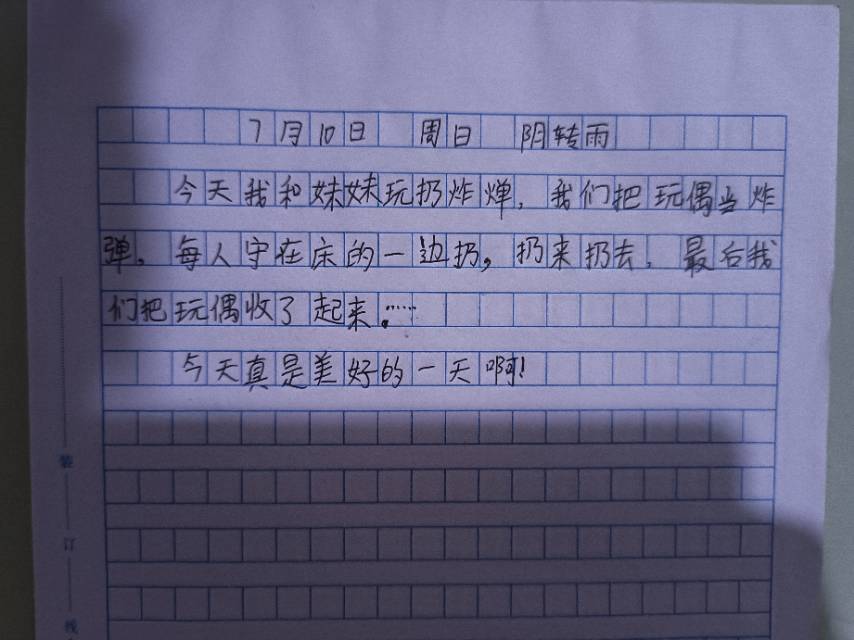 7月10日 周日 阴转雨
今天我和妹妹玩扔炸弹，我们把玩偶当炸
弹。每人守在床的一边扔，扔来扔去，最后我
们把玩偶收了起来。……
今天真是美好的一天啊！
装
订
线